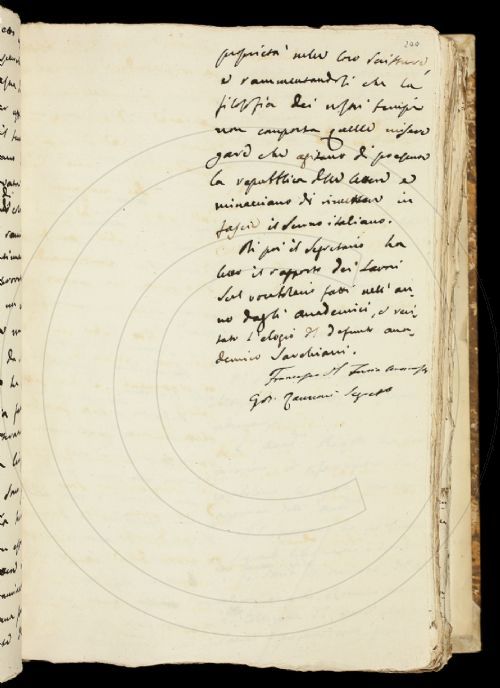 200
proprietà nelle loro scritture,
e rammentandosi che la
filosofia dei nostri tempi
non comporta quelle misere
gare che agitano di presente
la repubblica delle lettere e
minacciano di rimettere in
fascie il senno italiano.
Di poi il Segretario ha
letto il rapporto dei lavori
sul vocabolario fatti nell'an-
no dagli Accademici, e reci-
tato l'elogio del defunto acca-
demico Sarchiani.
Francesco Del Furia
Gio. Bat. Zannoni Segretº